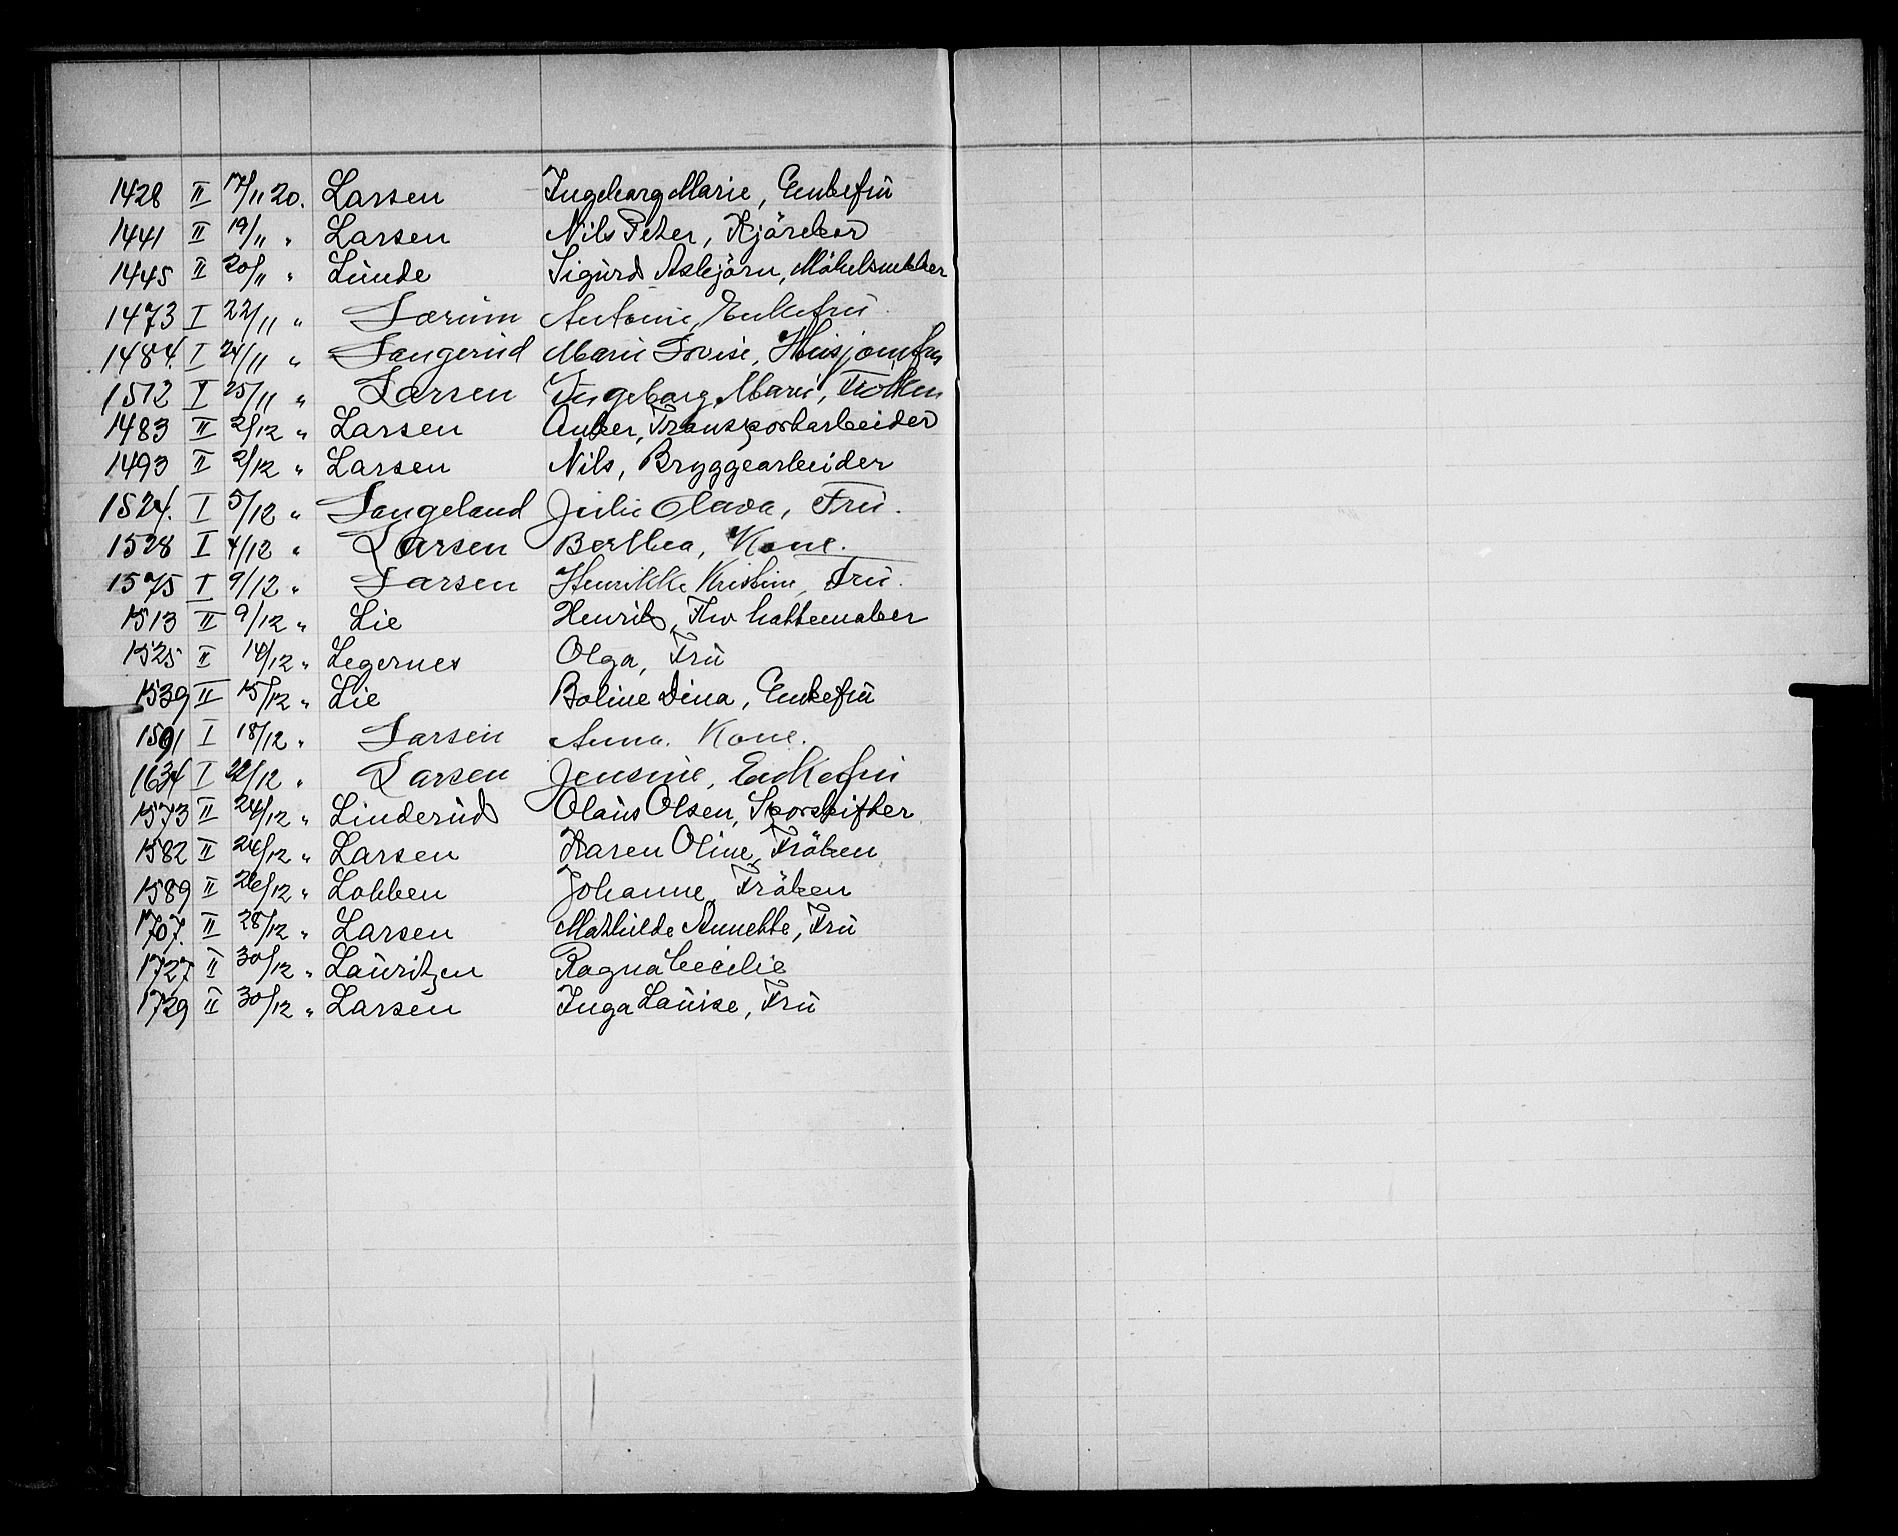 1428 II 17/11 20. Larsen Ingeborg Marie, Enkefrü
1441 II 19/11 " Larsen Nils Peter, Kjörekar
1445 II 20/11 " Lünde Sigürd Asbjörn, Möbelsnekker
1473 I 22/11 " Lærüm Antonie, Enkefrü.
1484. I 24/11 " Langerüd Marie Lovise, Hüsjomfrü
1512 I 25/11 " Larsen Ingeborg Marie, Fröken
1483 II 2/12 " Larsen Anker, Transportarbeider
1493 II 2/12 " Larsen Nils, Bryggearbeider
1524. I 5/12 " Langeland Julie Olava, Frü.
1528 I 4/12 " Larsen Berthea, Kone.
1575 I 9/12 " Larsen Henrikke Kristine, Frü.
1513 II 9/12 " Lie Henrik, Fhv hattemaker
1525 II 14/12 " Legernes Olga, Frü
1539 II 15/12 " Lie Boline Dina, Enkefrü
1591 I 18/12 " Larsen Anna. Kone.
1634 I 22/12 " Larsen Jensine, Enkefrü
1573 II 24/12 " Linderüd Olaüs Olsen, Sporskifter
1582 II 24/12 " Larsen Karen Oline, Fröken
1589 II 26/12 " Lobben Johanne, Fröken
1707. II 28/12 " Larsen Mathilde Annette, Frü
1727 II 30/12 " Laüritzen Ragna Cecilie
1729 II 30/12 " Larsen Inga Loüise, Frü